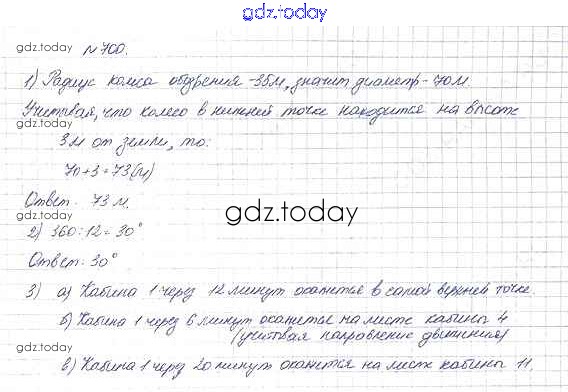 gdz.today
gdz.today
№ 700.
1) Радиус колеса обозрения - 35 м, значит диаметр - 70 м.
gdz.today
Учитывая, что колесо в нижней точке находится на высоте
gdz.today
3 м от земли, то:
70+3=73(м)
Ответ: 73 м.
gdz.today
gdz.today
2) 360:12=30°
Ответ: 30°
gdz.today
3) а) Кабина 1 через 12 минут окажется в самой верхней точке.
gdz.today
б) Кабина 1 через 6 минут окажется на месте кабины 4
(учитывая направление движения)
gdz.today
в) Кабина 1 через 20 минут окажется на месте кабины 11.